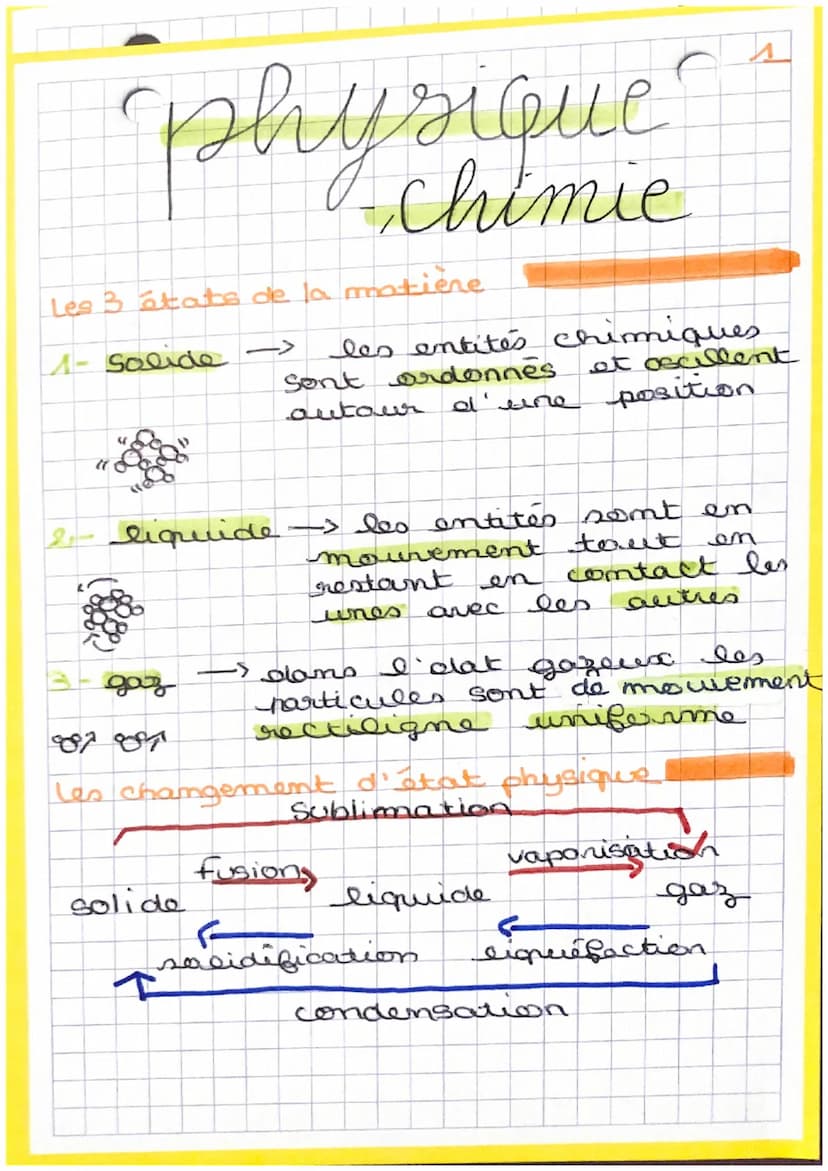 1
physique
-chimie
Les 3 états de la matière
1- solide → les entités chimiques
sont ordonnés et oscillent
autour d'une position
2- liquide → les entités sont en
mouvement tout en
restant en contact les
unes avec les autres
3- gaz → dans l'état gazeux les
particules sont de mouvement
rectiligne uniforme
Les changement d'état physique
sublimation
fusion vaporisation
solide liquide gaz
solidification liquéfaction
condensation